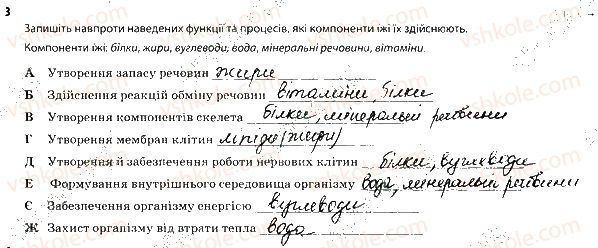 3
Запишіть навпроти наведених функцій та процесів, які компоненти їжі їх здійснюють.
Компоненти їжі: білки, жири, вуглеводи, вода, мінеральні речовини, вітаміни.
А Утворення запасу речовин жири
Б Здійснення реакцій обміну речовин вітаміни, білки
В Утворення компонентів скелета білки, мінеральні речовини
Г Утворення мембран клітин ліпіди (жири)
Д Утворення й забезпечення роботи нервових клітин білки, вуглеводи
Е Формування внутрішнього середовища організму вода, мінеральні речовини
Є Забезпечення організму енергією вуглеводи
Ж Захист організму від втрати тепла вода